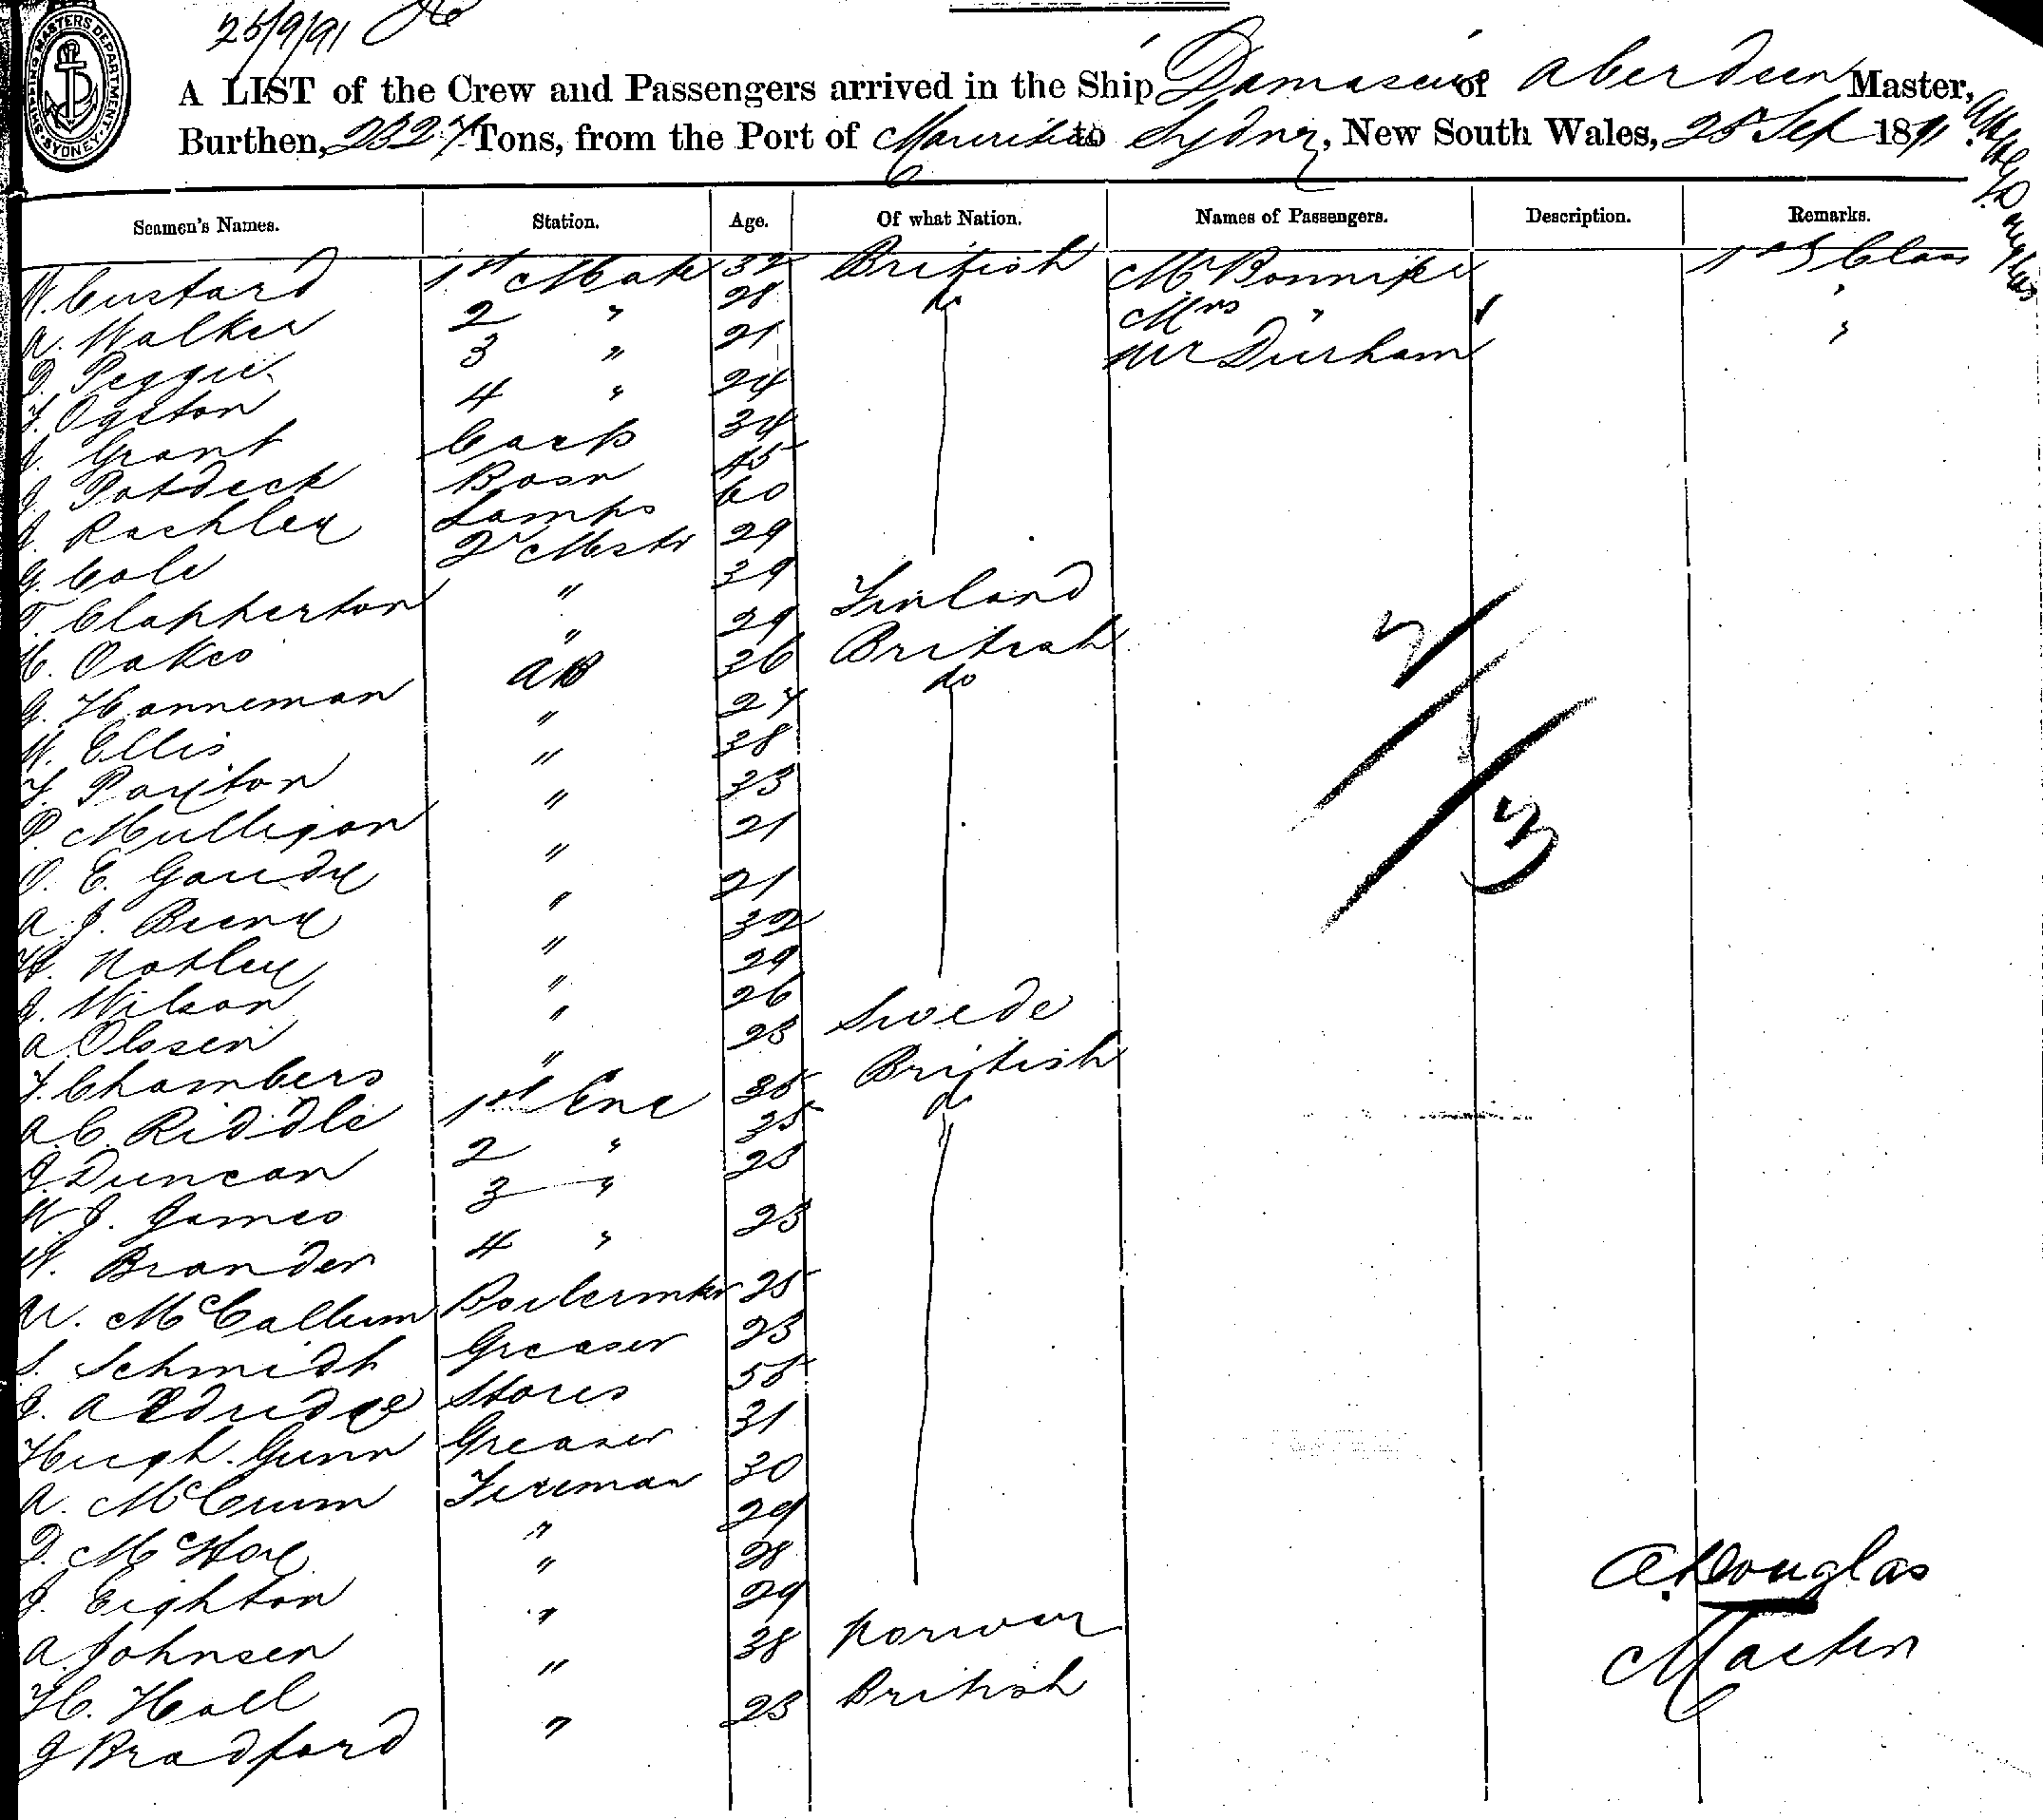 25/9/91
SHIPPING MASTERS DEPARTMENT. SYDNEY.
A LIST of the Crew and Passengers arrived in the Ship Damascus of Aberdeen Master, A. H. H. G. Douglas
Burthen, 2327 Tons, from the Port of Mauritius to Sydney, New South Wales, 25 Sep 1891
Seamen's Names. Station. Age. Of what Nation. Names of Passengers. Description. Remarks.
W. Custard 1st Mate 32 British Mr Bonnifer 1st S Class
A. Walker 2 " 28 do Mrs " "
D. Peggie 3 " 21 Mr Durham "
F. Ogston 4 " 24
J. Grant Carp 34
J. Potdeck Bosn 45
J. Rachley Lamps 60
G. Cole Qr Mstr 29
T. Clapperton " 39
H. Oakes " 29 Finland
G. Hanneman AB 36 British
W. Ellis " 24 do
F. Paxton " 38
P. Mulligan " 23
O. E. Gaudy " 21
A. J. Burne " 21
H. Notley " 32
J. Wilson " 29
A Olssen " 26 Swede
F. Chambers " 23 British
A. C. Riddle 1st Eng 35 do
J Duncan 2 " 35
W. J. James 3 " 23
W. Brander 4 " 23
W. McCallum Boilermkr 25
S. Schmidt Greaser 23
J. Aldridge Stores 55
Hugh Gunn Greaser 31
A. McCrum Fireman 30
D. McHoy " 29
J. Eighton " 28
A. Johnsen " 29 Norway
H. Hall " 38 British
J Bradford " 23
3
A. Douglas
Master